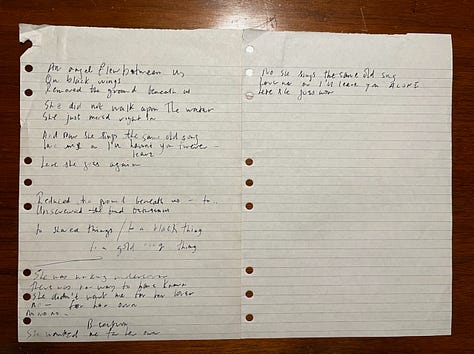 An angel flew between us
On black wings
Removed the ground beneath us
She did not walk upon The water
She just moved right in
And now she sings the same old song
love me or I'll haunt you forever
leave
Here she goes again
Reduced the ground beneath us - to..
the bond between us
to shared things / to a black thing
to a gold ring thing
She was working undercover
There was no way to have known
She didn't want me for her lover
no - for her own
no no no -
She wanted me for her own
she sings the same old song
Love me or I'll leave you ALONE
Here she goes